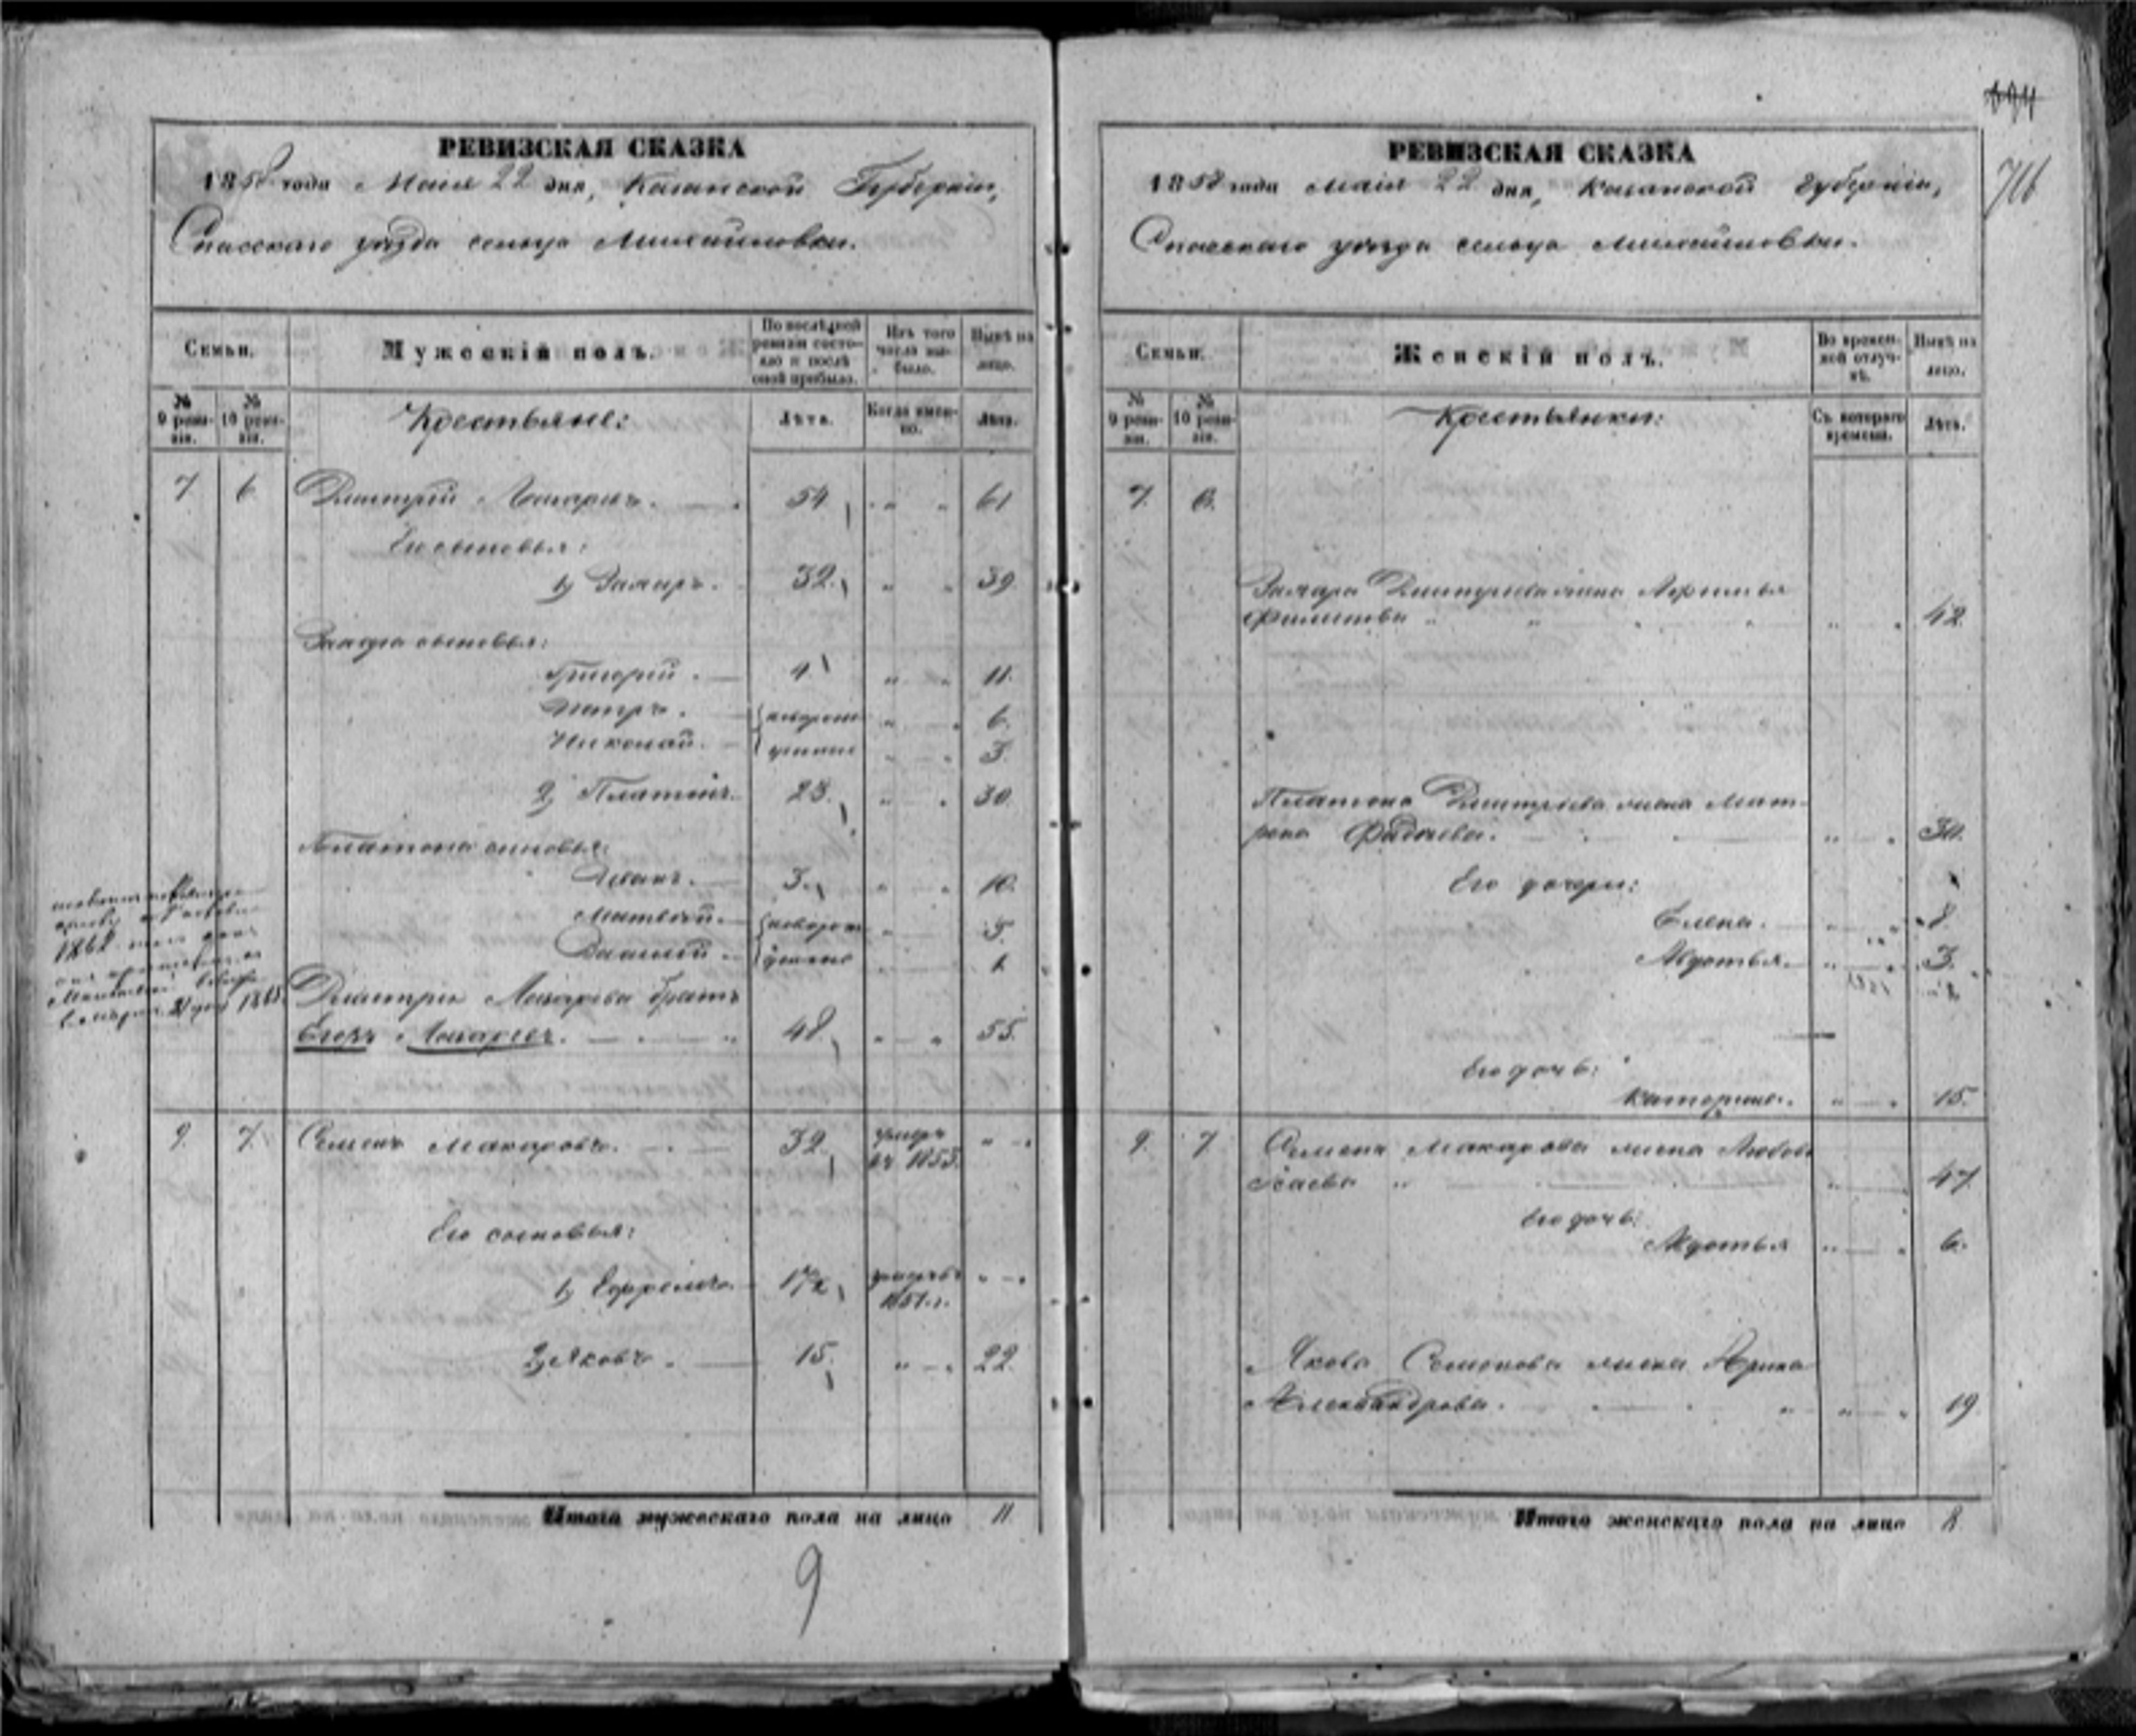 РЕВИЗСКАЯ СКАЗКА
1858 года Маія 22 дня, Казанской Губерніи,
Спасскаго уѣзда сельца Михайловки.
Семьи.
Мужескій полъ.
По послѣдней ревизіи состояло и послѣ оной прибыло.
Изъ того числа выбыло.
Нынѣ на лицо.
№ 9 ревизіи.
№ 10 ревизіи.
Крестьяне:
Лѣта.
Когда именно.
Лѣта.
7 6 Дмитрій 54 " " 61
Его сыновья:
1, 32 " " 39
сыновья:
Григорій. 4 " " 11.
Петръ. новорож " " 6.
Николай. денные " " 3.
2, Платонъ. 23. " " 30.
Платона сыновья:
Иванъ. 3. " " 10.
Матвѣй. новорож " 5.
Василій. денные 1
1868
1868
Дмитрія братъ
Егоръ 48. " " 55.
9. 7. Семенъ Макаровъ. 32. умеръ " "
въ 1853.
Его сыновья:
1, Ефремъ. 17½ умеръ въ " "
1851 г.
2, Яковъ. 15. " " 22.
Итого мужескаго пола на лицо 11
9
694
716
РЕВИЗСКАЯ СКАЗКА
1858 года Маія 22 дня, Казанской Губерніи,
Спасскаго уѣзда сельца Михайловки.
Семьи.
Женскій полъ.
Во временной отлучкѣ.
Нынѣ на лицо.
№ 9 ревизіи.
№ 10 ревизіи.
Крестьянки:
Съ котораго времени.
Лѣта.
7. 6.
Дмитріева жена
" " 42.
Платона Дмитріева жена Мат-
рена Фадѣева. " " 30.
Его дочери:
Елена. " " 8.
Авдотья. " " 3.
Его дочь:
Катерина. " " 15.
9. 7 Семена Макарова жена Любовь
Исаева " " " 47
Его дочь:
Авдотья " " 6.
Якова Семенова жена Арина
Александрова. " " " 19.
Итого женскаго пола на лицо 8.